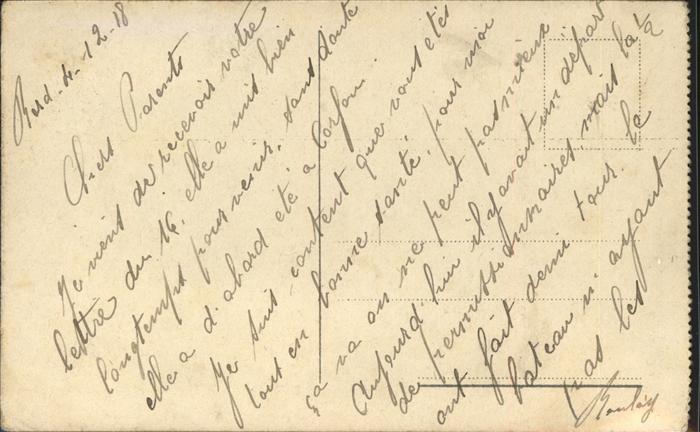 4-12-18
Chers Parents
Je viens de recevoir votre
lettre du 16, elle a mis bien
longtemps pour venir, sans doute
elle a d'abord été à Corfou.
Je suis content que vous êtes
tout en bonne santé, pour moi
ça va on ne peut pas mieux
Aujourd'hui il y avait un départ
de permissionnaires, mais la 1/2
ont fait demi tour. le
bateau n'ayant
pas les